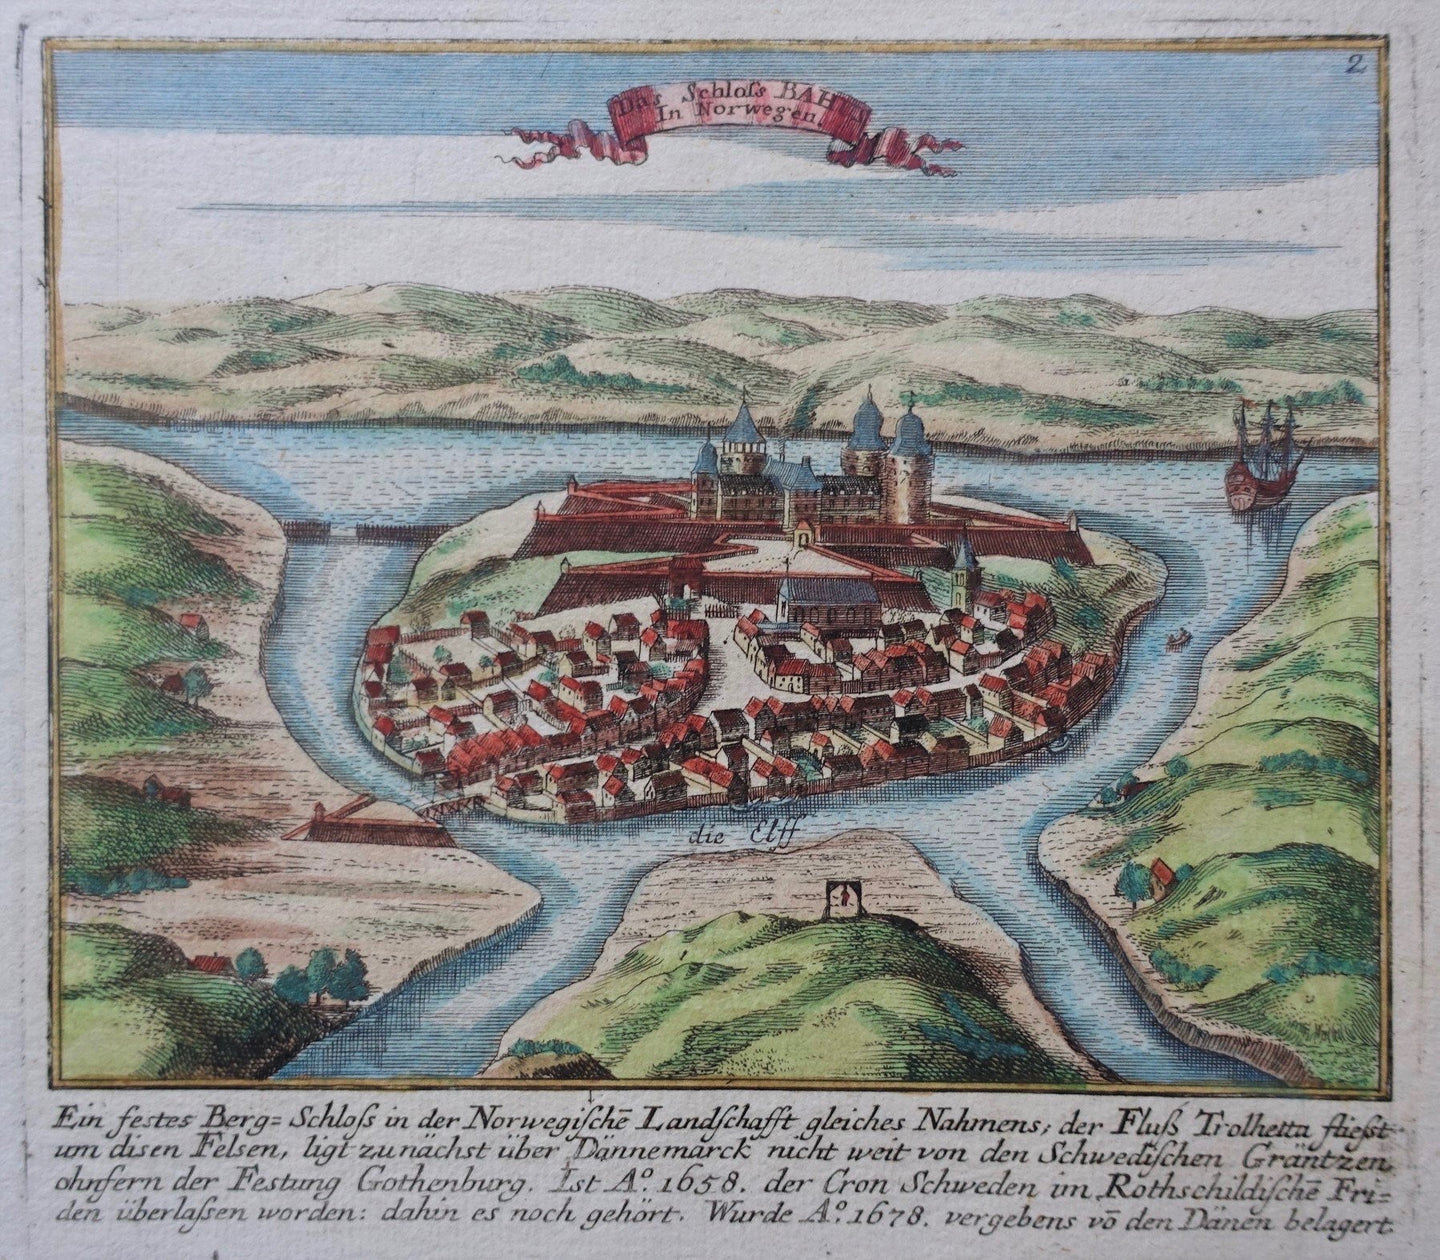 2
Das Schloſs BAHUS
In Norwegen.
die Elff
Ein festes Berg= Schloſs in der Norwegiſchē Landſchafft gleiches Nahmens, der Fluß Trolhetta fließt
um disen Felsen, ligt zunächst über Dännemarck nicht weit von den Schwediſchen Gräntzen,
ohnfern der Festung Gothenburg. Ist Aº. 1658. der Cron Schweden im Rothschildiſchē Fri=
den überlaſsen worden: dahin es noch gehört. Wurde Aº. 1678. vergebens vō den Dänen belagert.